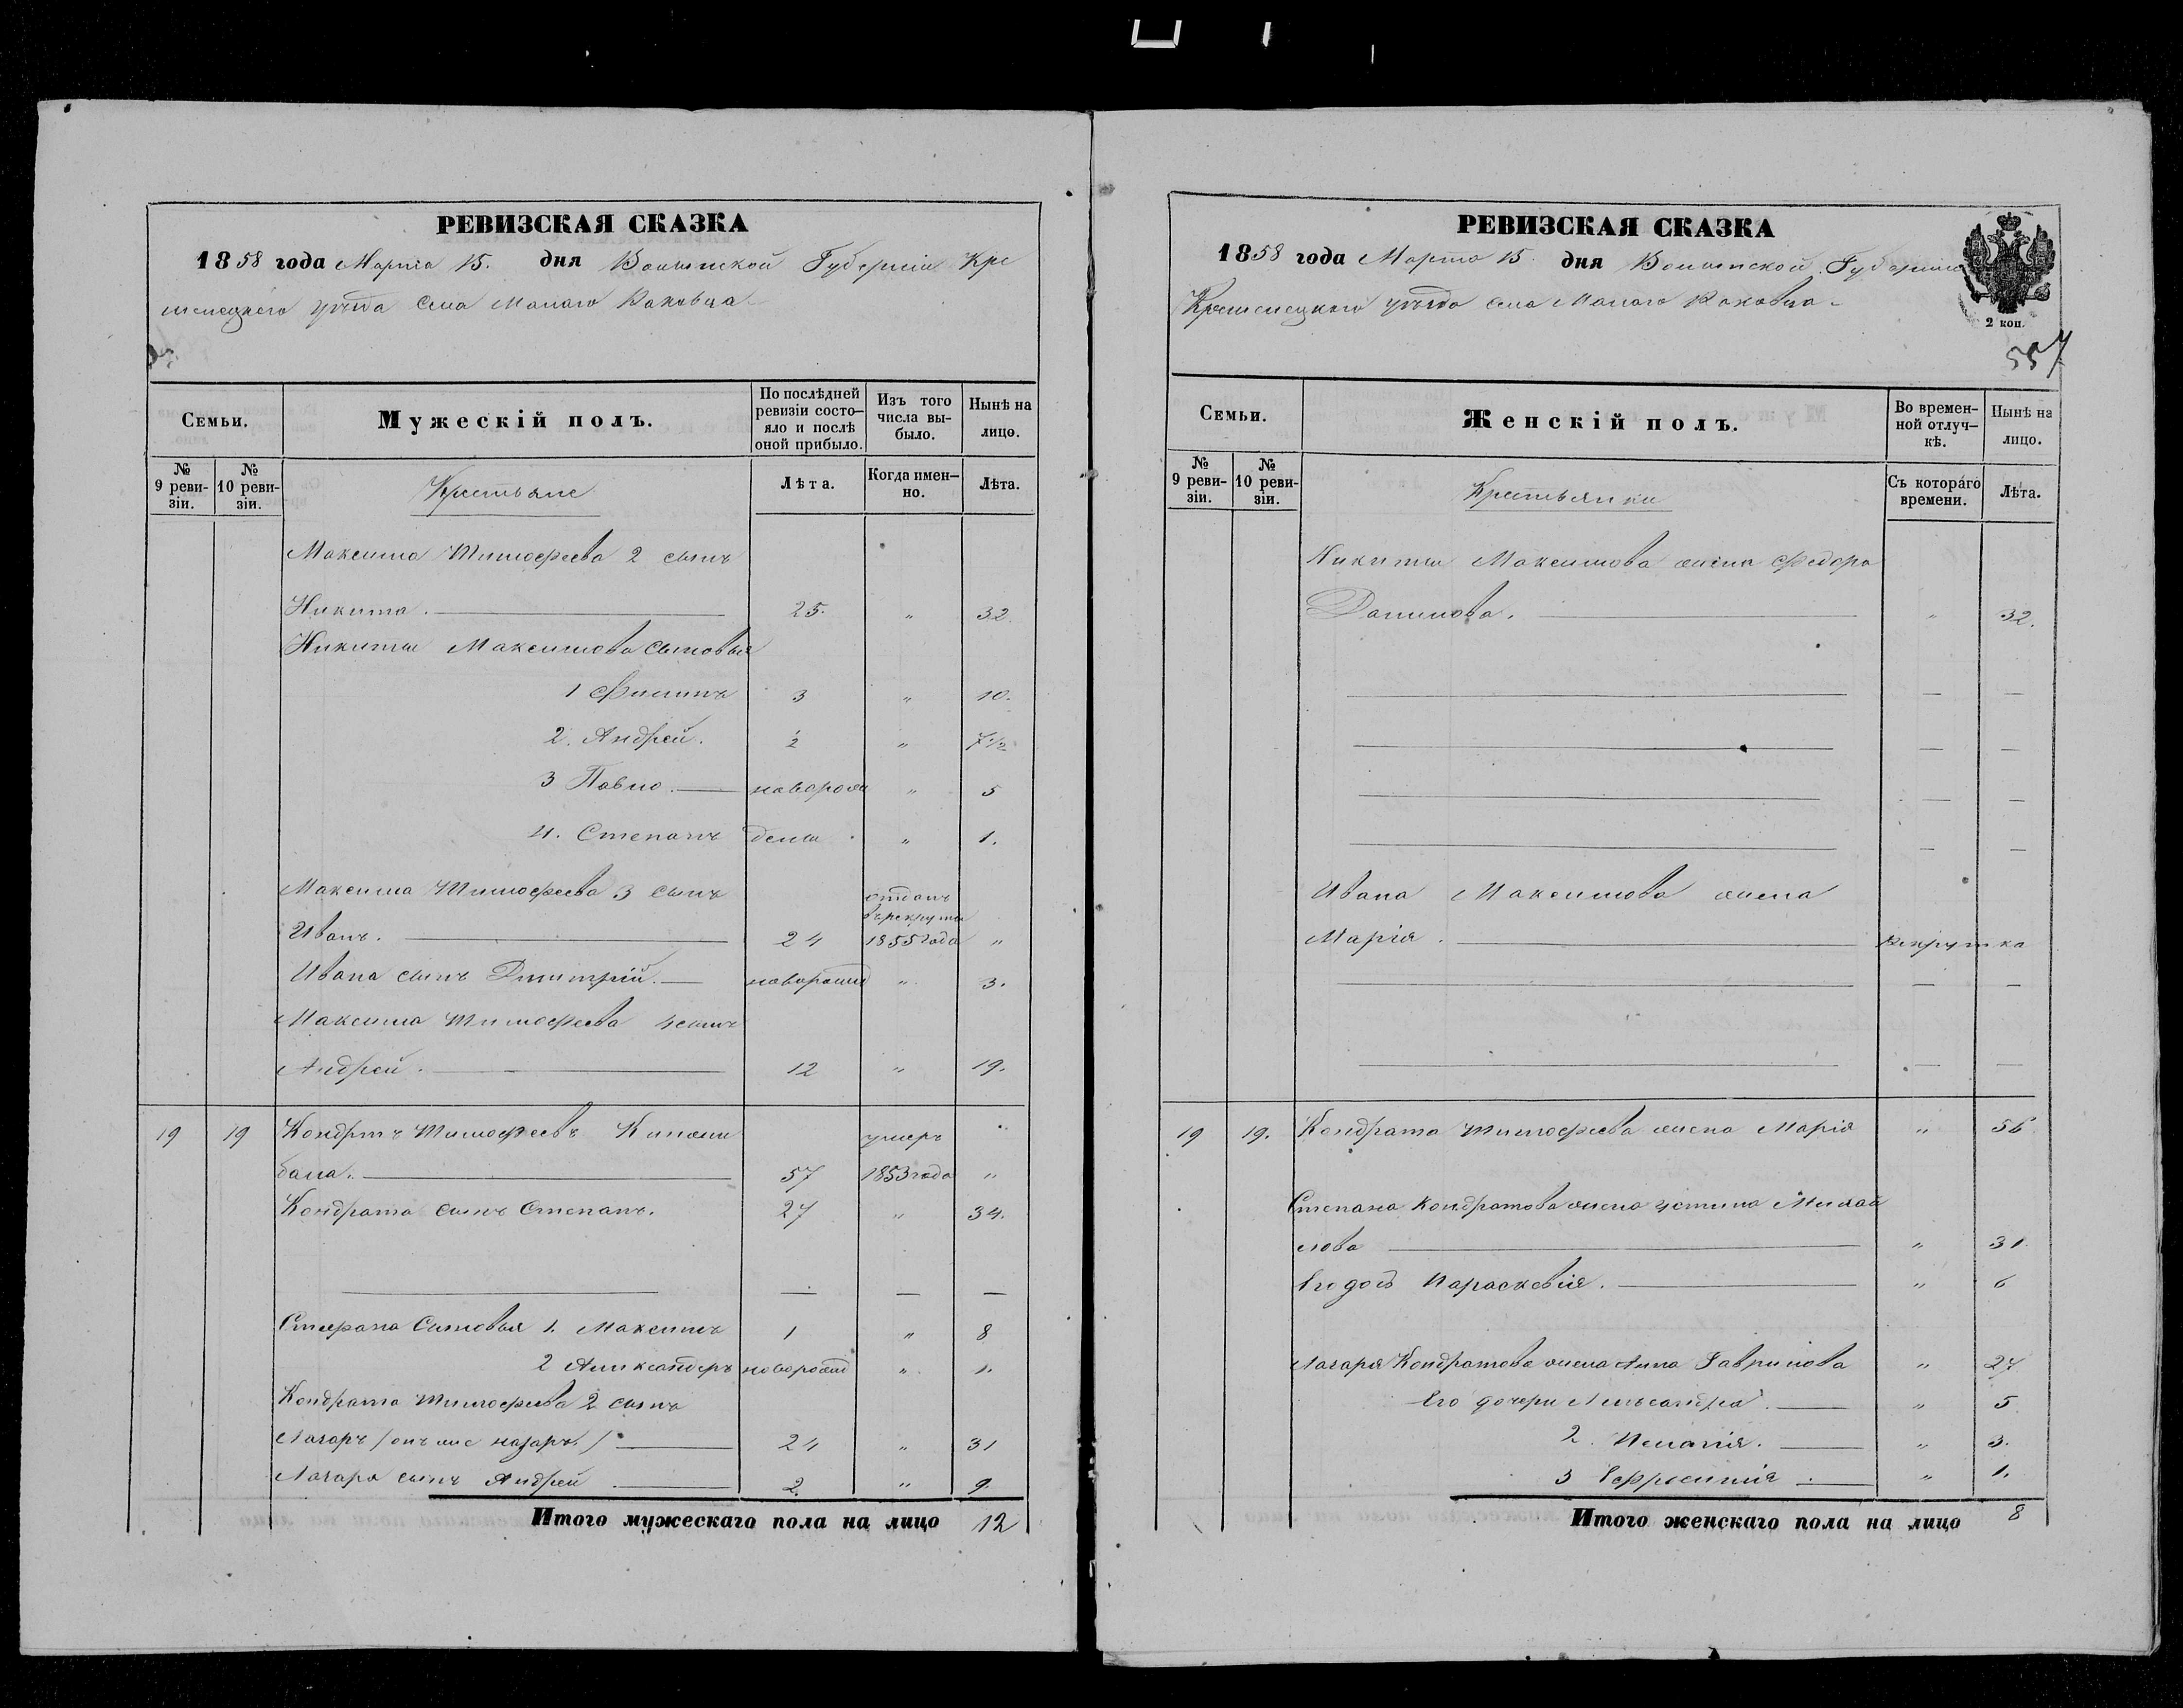 РЕВИЗСКАЯ СКАЗКА
1858 года Марта 15. дня Волынской Губерніи Кре
менецкаго уѣзда села Малаго Раковца
Семьи.
Мужескій полъ.
По послѣдней ревизіи состо-яло и послѣ оной прибыло.
Изъ того числа вы-было.
Нынѣ на лицо.
№ 9 реви-зіи.
№ 10 реви-зіи.
Крестьяне
Лѣта.
Когда имен-но.
Лѣта.
Максима Тимофеева 2 сынъ
Никита. 25. " 32.
Никиты Максимова сыновья
1 Филипъ 3 " 10.
2. Андрей. ½ " 7½
3 Павло. новорож " 5
4. Степанъ дены " 1.
Максима Тимофеева 3 сынъ отданъ
въ рекруты
Иванъ. 24 1855 года "
Ивана сынъ Дмитрій. новорожд " 3.
Максима Тимофеева 4 сынъ
Андрей. 12 " 19.
19 19 Кондратъ Тимофеевъ умеръ "
57 1853 года "
Кондрата сынъ Степанъ. 27 " 34.
Стефана Сыновья 1. Максимъ 1 " 8
2 Александеръ новорожд " 1.
Кондрата Тимофеева 2 сынъ
Лазаръ /онъ же назаръ/ 24 " 31
Лазара сынъ Андрей 2. " 9
Итого мужескаго пола на лицо 12
РЕВИЗСКАЯ СКАЗКА
1858 года Марта 15 дня Волынской Губерніи
Кременецкаго уѣзда села Малаго Раковца
2 коп.
557
Семьи.
Женскій полъ.
Во времен-ной отлуч-кѣ.
Нынѣ на лицо.
№ 9 реви-зіи.
№ 10 реви-зіи.
Крестьянки
Съ котораго времени.
Лѣта.
Никиты Максимова жена Федора
Данилова. " 32.
Ивана Максимова жена
Марія. рекрутка
19 19. Кондрата Тимофеева жена Марія " 56
Степана Кондратова жена Устина Михай
лова " 31
Его дочь Параскевія. " 6
Лазаря Кондратова жена Анна Гаврилова " 27
Его дочери Алѣксандра. " 5
2. Меланія. " 3.
3 Ефросинія " 1.
Итого женскаго пола на лицо 8